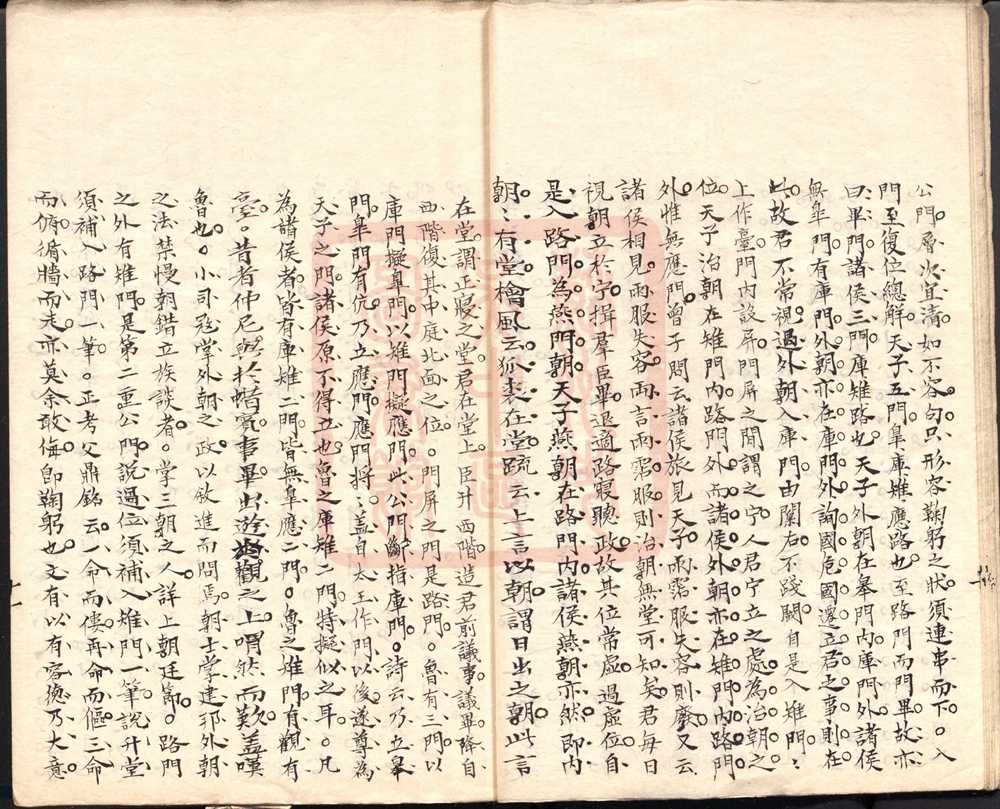 公門層次宜清如不容句只形容鞠躬之狀須連串而下。入
門至復位總解天子五門皐庫雉應路也至路門而門畢故亦
曰畢門諸侯三門庫雉路也天子外朝在皋門內庫門外諸侯
無皐門有庫門外朝亦在庫門外詢國危國遷立君之事則在
此故君不常視過外朝入庫門由闑右不踐閾自是入雉門〻
上作臺門內設屏門屏之間謂之宁人君宁立之處為治朝之
位天子治朝在雉門內路門外而諸侯外朝亦在雉門內路門
外惟無應門曾子問云諸侯旅見天子雨霑服失容則廢又云
諸侯相見雨服失容兩言雨霑服則治朝無堂可知矣君每日
視朝立於宁揖羣臣畢退適路寢聽政故其位常虛過虛位自
是入路門為燕門朝天子燕朝在路門內諸侯燕朝亦然即內
朝〻有堂檜風云狐裘在堂疏云上言以朝謂日出之朝此言
在堂謂正寢之堂君在堂上臣升西階造君前議事議畢降自
西階復其中庭北面之位。門屏之門是路門。魯有三門以
庫門擬皐門以雉門擬應門此公門斷指庫門。詩云乃立皋
門皐門有伉乃立應門應門將〻盖自太王作門以後遂尊為
天子之門諸侯原不得立也魯之庫雉二門特擬似之耳。凡
為諸侯者皆有庫雉二門皆無皐應二門。魯之雉門有觀有
臺。昔者仲尼與於蜡賓事畢出遊於觀之上喟然而歎盖嘆
魯也。小司寇掌外朝之政以敘進而問焉朝士掌建邦外朝
之法禁慢朝錯立族談者。掌三朝之人詳上朝廷節。路門
之外有雉門是第二重公門說過位須補入雉門一筆說升堂
須補入路門一筆。正考父鼎銘云。一命而僂再命而傴三命
而俯循牆而走亦莫余敢侮即鞠躬也文有以有容德乃大意